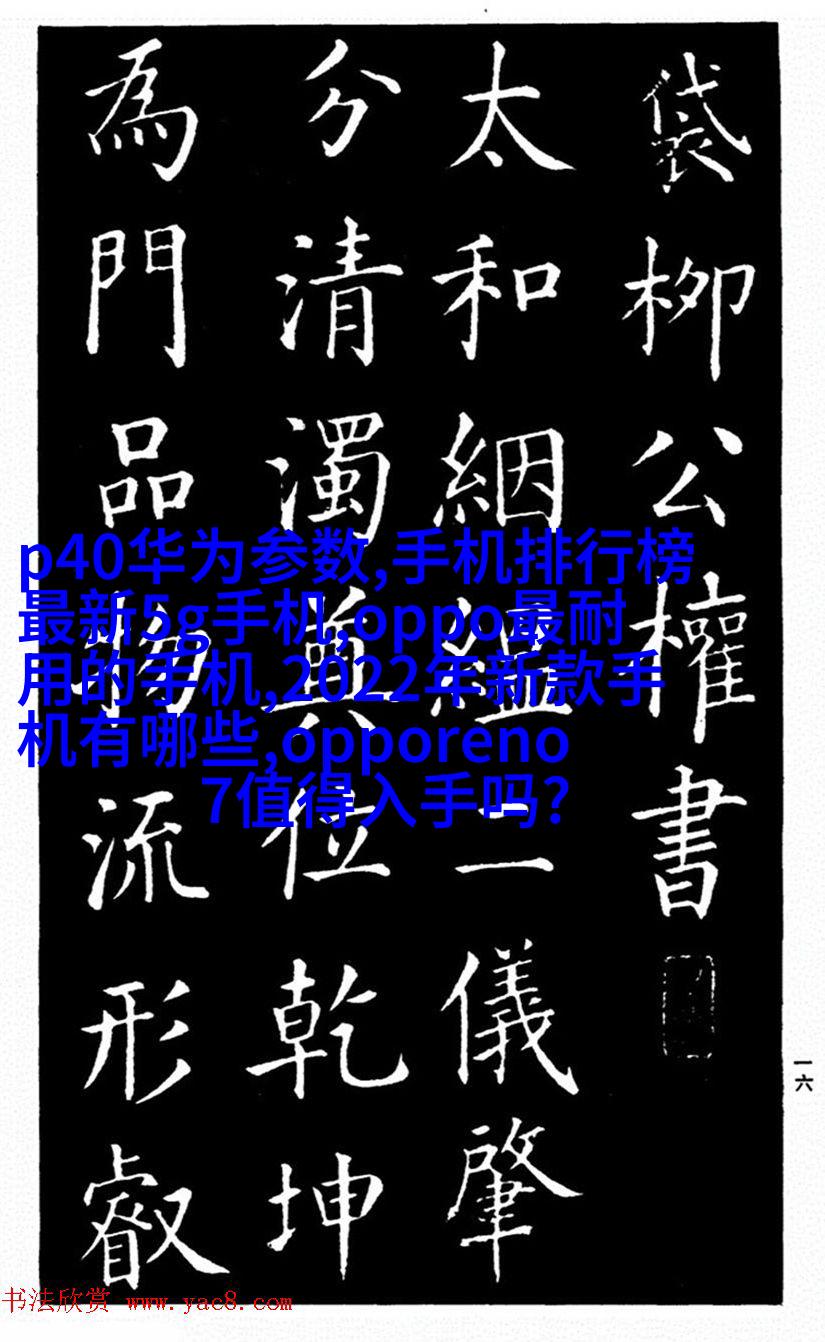 袋柳公權書
太和絪縕二儀肇
分清濁奠位乾坤
為門品物流形叡
p40华为参数,手机排行榜
最新5g手机,oppo最耐
用的手机,2022年新款手
机有哪些,opporeno
7值得入手吗?
一六
书法欣赏 www.yac8.com